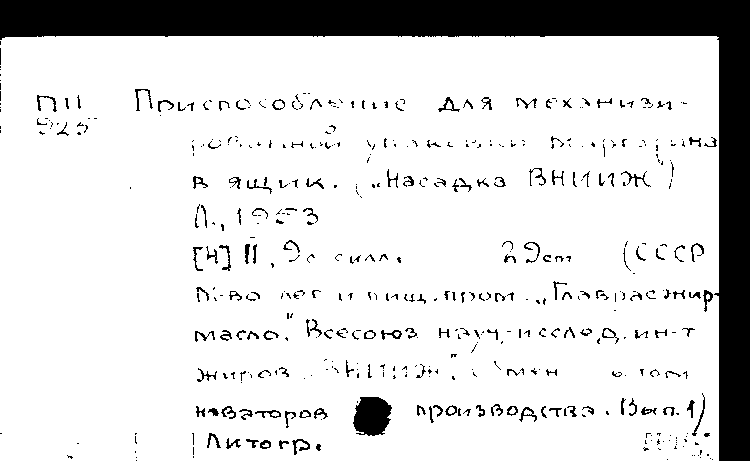 ПII Приспособление для механизи-
925
рованной упаковки маргарина
в ящик. („Насадка ВНИИЖ")
Л., 1953
[4] II, 9с силл. 29см (СССР
М-во лег и пищ. пром. „Главрасжир-
масло." Всесоюз науч.-исслед. ин-т
жиров „ВНИИЖ". Обмен опытом
новаторов производства. Вып. 1)
Литогр.